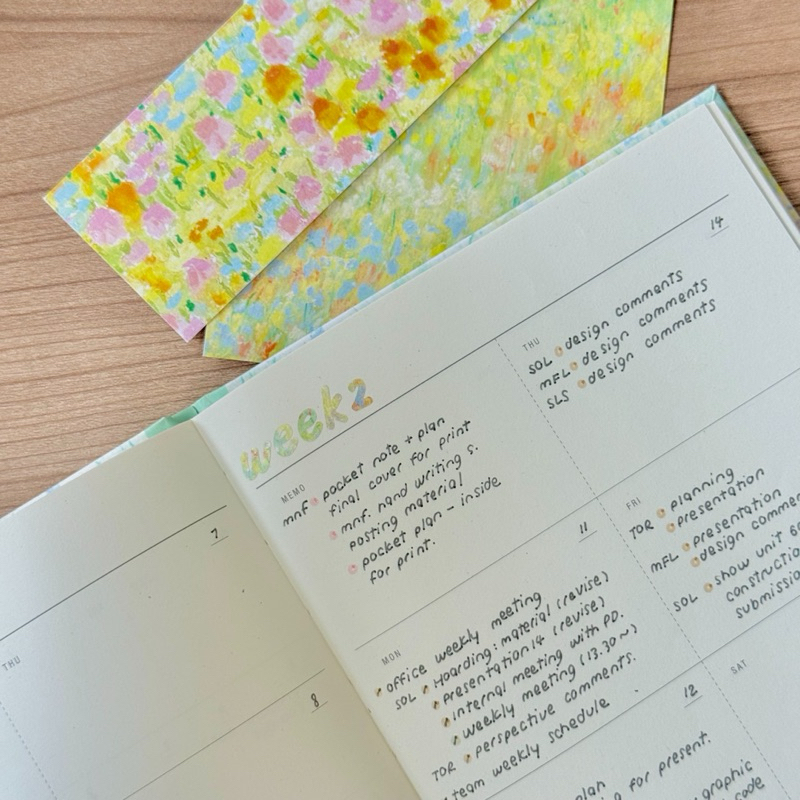 7
THU
8
week2
MEMO
mnf pocket note + plan
final cover for print
mnf. hand writing s.
posting material
pocket plan - inside
for print.
11
MON
office weekly meeting
SOL Hoarding: material (revise)
Presentation 14 (revise)
internal meeting with PD.
weekly meeting (13.30~)
TOR perspective comments.
team weekly schedule
12
plan
for present.
graphic
code
14
THU
SOL design comments
MFL design comments
SLS design comments
FRI
TOR planning
presentation
MFL presentation
design
SOL show unit
SAT